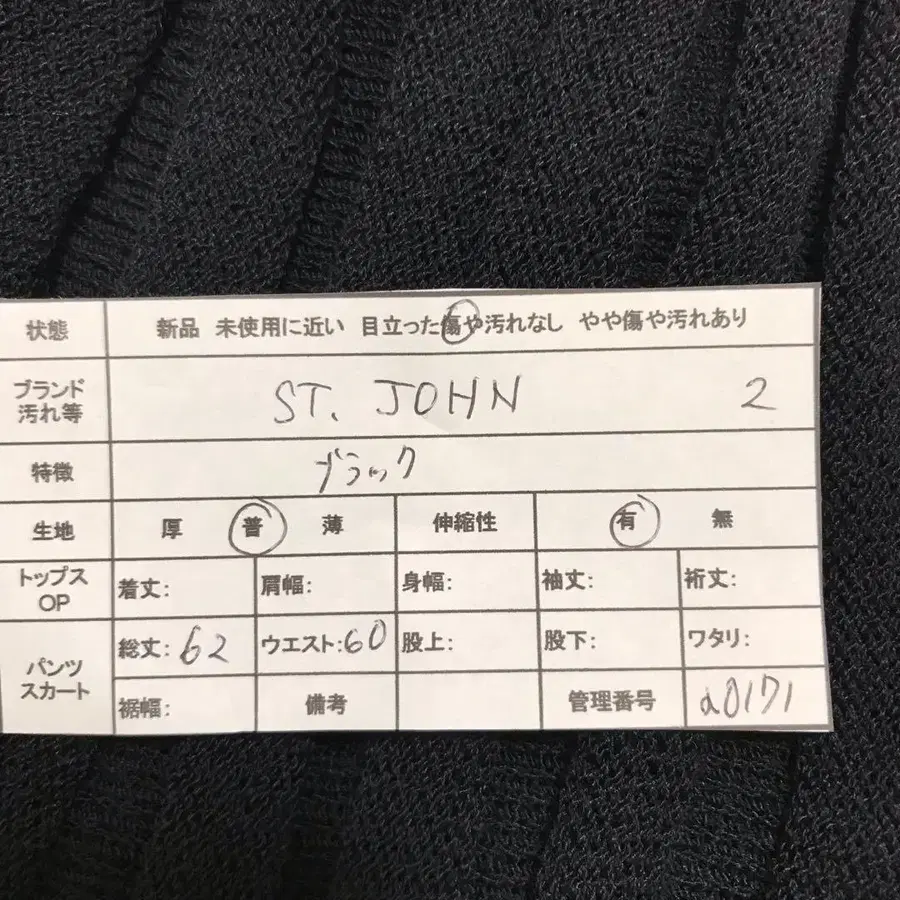 状態 新品 未使用に近い 目立った傷や汚れなし やや傷や汚れあり
ブランド
汚れ等
ST. JOHN 2
特徴 ブラック
生地 厚 普 薄 伸縮性 有 無
トップス
OP
着丈: 肩幅: 身幅: 袖丈: 裄丈:
パンツ
スカート
総丈: 62 ウエスト: 60 股上: 股下: ワタリ:
裾幅: 備考 管理番号 a0171